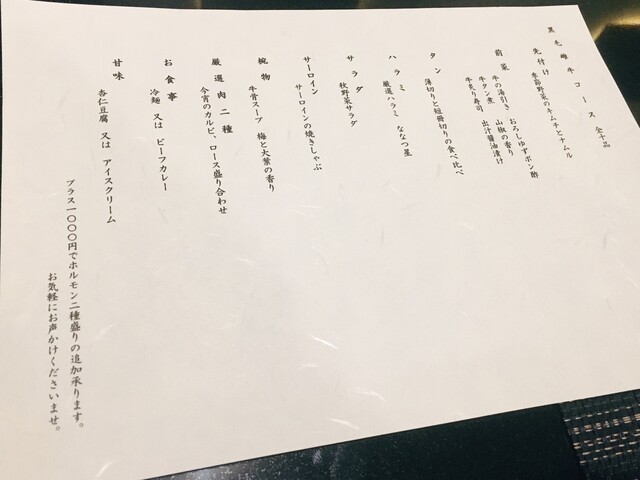 黒毛雌牛コース 全十品
先付け 季節野菜のキムチとナムル
前菜 牛の湯引き おろしゆずポン酢
牛タン煮 山椒の香り
牛炙り寿司 出汁醤油漬け
タン 薄切りと短冊切りの食べ比べ
ハラミ 厳選ハラミ ななつ星
サラダ 秋野菜サラダ
サーロイン サーロインの焼きしゃぶ
椀物 牛骨スープ 梅と大葉の香り
厳選肉二種 今宵のカルビ、ロース盛り合わせ
お食事 冷麺 又は ビーフカレー
甘味 杏仁豆腐 又は アイスクリーム
プラス一〇〇〇円でホルモン二種盛りの追加承ります。
お気軽にお声かけくださいませ。